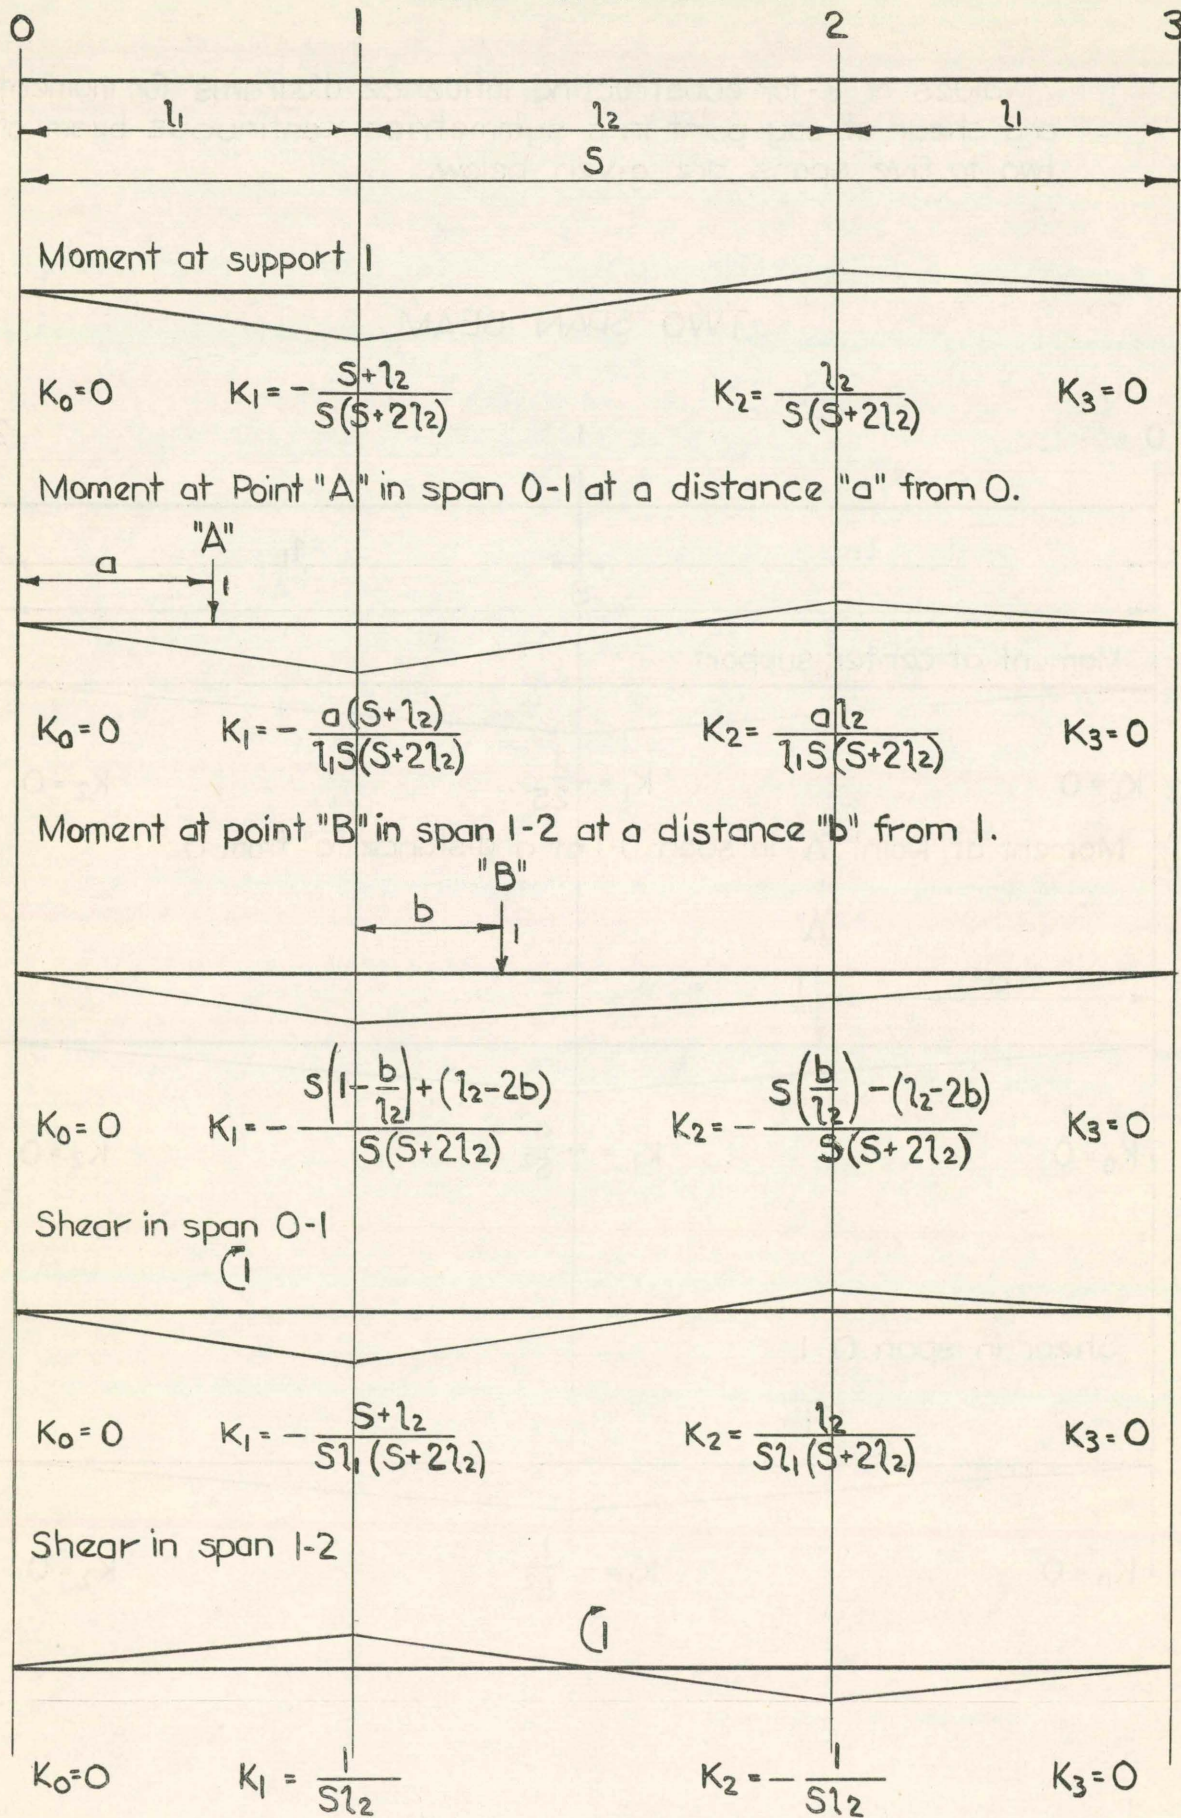 0 1 2 3
l₁ l₂ l₁
S
Moment at support 1
K₀=0 K₁=-(S+l₂)/(S(S+2l₂)) K₂=l₂/(S(S+2l₂)) K₃=0
Moment at Point "A" in span 0-1 at a distance "a" from 0.
"A"
a
1
K₀=0 K₁=-a(S+l₂)/(l₁S(S+2l₂)) K₂=al₂/(l₁S(S+2l₂)) K₃=0
Moment at point "B" in span 1-2 at a distance "b" from 1.
"B"
b
1
K₀=0 K₁=-(S(1-b/l₂)+(l₂-2b))/(S(S+2l₂)) K₂=-(S(b/l₂)-(l₂-2b))/(S(S+2l₂)) K₃=0
Shear in span 0-1
1
K₀=0 K₁=-(S+l₂)/(Sl₁(S+2l₂)) K₂=l₂/(Sl₁(S+2l₂)) K₃=0
Shear in span 1-2
1
K₀=0 K₁=1/(Sl₂) K₂=-1/(Sl₂) K₃=0